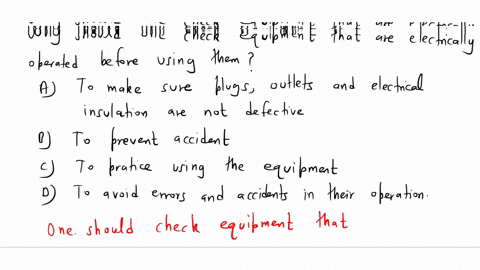 Why should one check equipment that are electrically
operated before using them?
A) To make sure plugs, outlets and electrical
insulation are not defective
B) To prevent accident
C) To pratice using the equipment
D) To avoid errors and accidents in their operation.
One should check equipment that